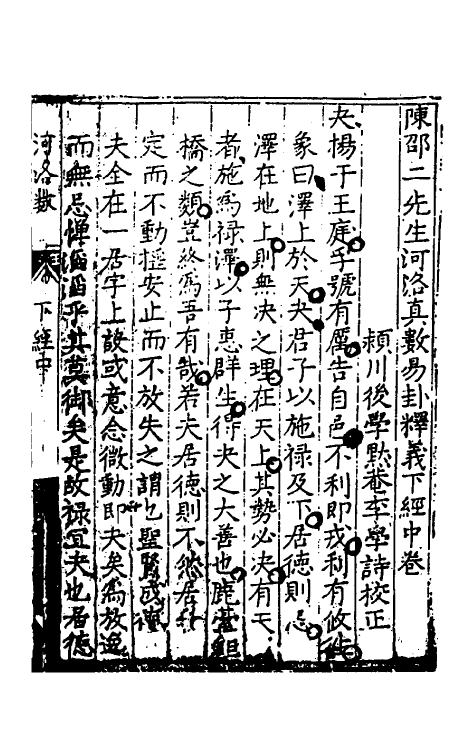 陳邵二先生河洛真數易卦釋義下經中卷
潁川後學默菴李學詩校正
夬揚于王庭孚號有厲告自邑不利即戎利有攸往
象曰澤上於天夬君子以施禄及下居德則忌
澤在地上則無决之理在天上其勢必决有天
者施爲禄澤以子惠群生待夬之大善也鹿臺鉅
橋之類豈終爲吾有哉若夫居德則不然居
定而不動極安止而不放失之謂也聖賢
夫全在一居字上設或意念微動即夬矣爲放逸
而無忌憚滔滔乎其莫御矣是故禄宜夬也居德
河洛數
下經中